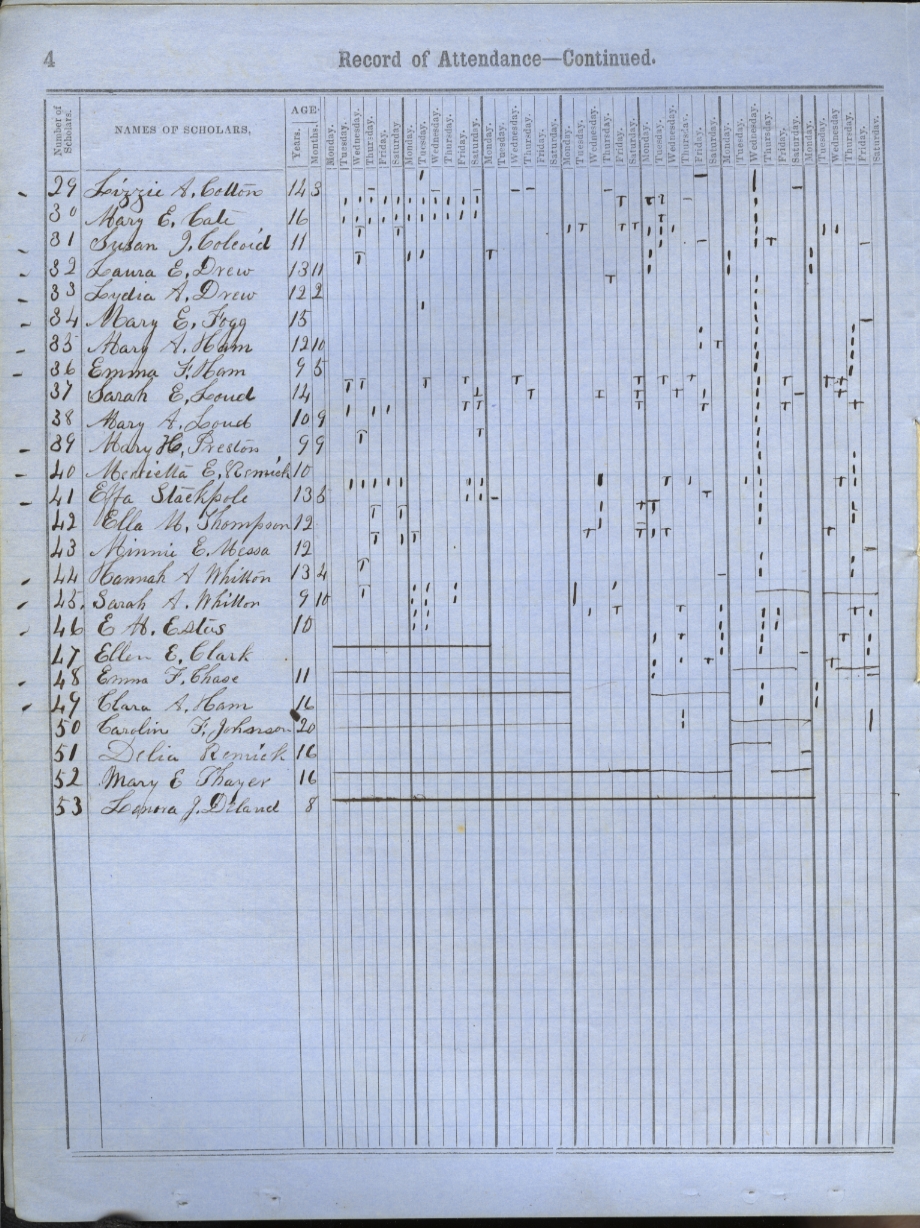 4 Record of Attendance—Continued.
Number of Scholars. NAMES OF SCHOLARS, AGE. Years. Months. Monday. Tuesday. Wednesday. Thursday. Friday. Saturday. Monday. Tuesday. Wednesday. Thursday. Friday. Saturday. Monday. Tuesday. Wednesday. Thursday. Friday. Saturday. Monday. Tuesday. Wednesday. Thursday. Friday. Saturday. Monday. Tuesday. Wednesday. Thursday. Friday. Saturday. Monday. Tuesday. Wednesday. Thursday. Friday. Saturday. Monday. Tuesday. Wednesday. Thursday. Friday. Saturday.
29 Lizzie A. Cotton 14 3
30 Mary E. Cate 16
31 Susan J. 11
32 Laura E. Drew 13 11
33 Lydia A. Drew 12 2
34 Mary E. Fogg 15
35 Mary A. Ham 12 10
36 Emma F. Ham 9 5
37 Sarah E. Loud 14
38 Mary A. Loud 10 9
39 Mary H. Preston 9 9
40 Henrietta E. Remick 10
41 Effa Stackpole 13
42 Ella Thompson 12
43 Minnie E. Messa 12
44 Hannah A Whitton 13 4
45. Sarah A. Whitton 9 10
46 E H. Estes 10
47 Ellen E. Clark
48 Emma F. Chase 11
49 Clara A. Ham 16
50 Carolin F. Johnson 20
51 Delia Remick 16
52 Mary E Thayer 16
53 J. Deland 8